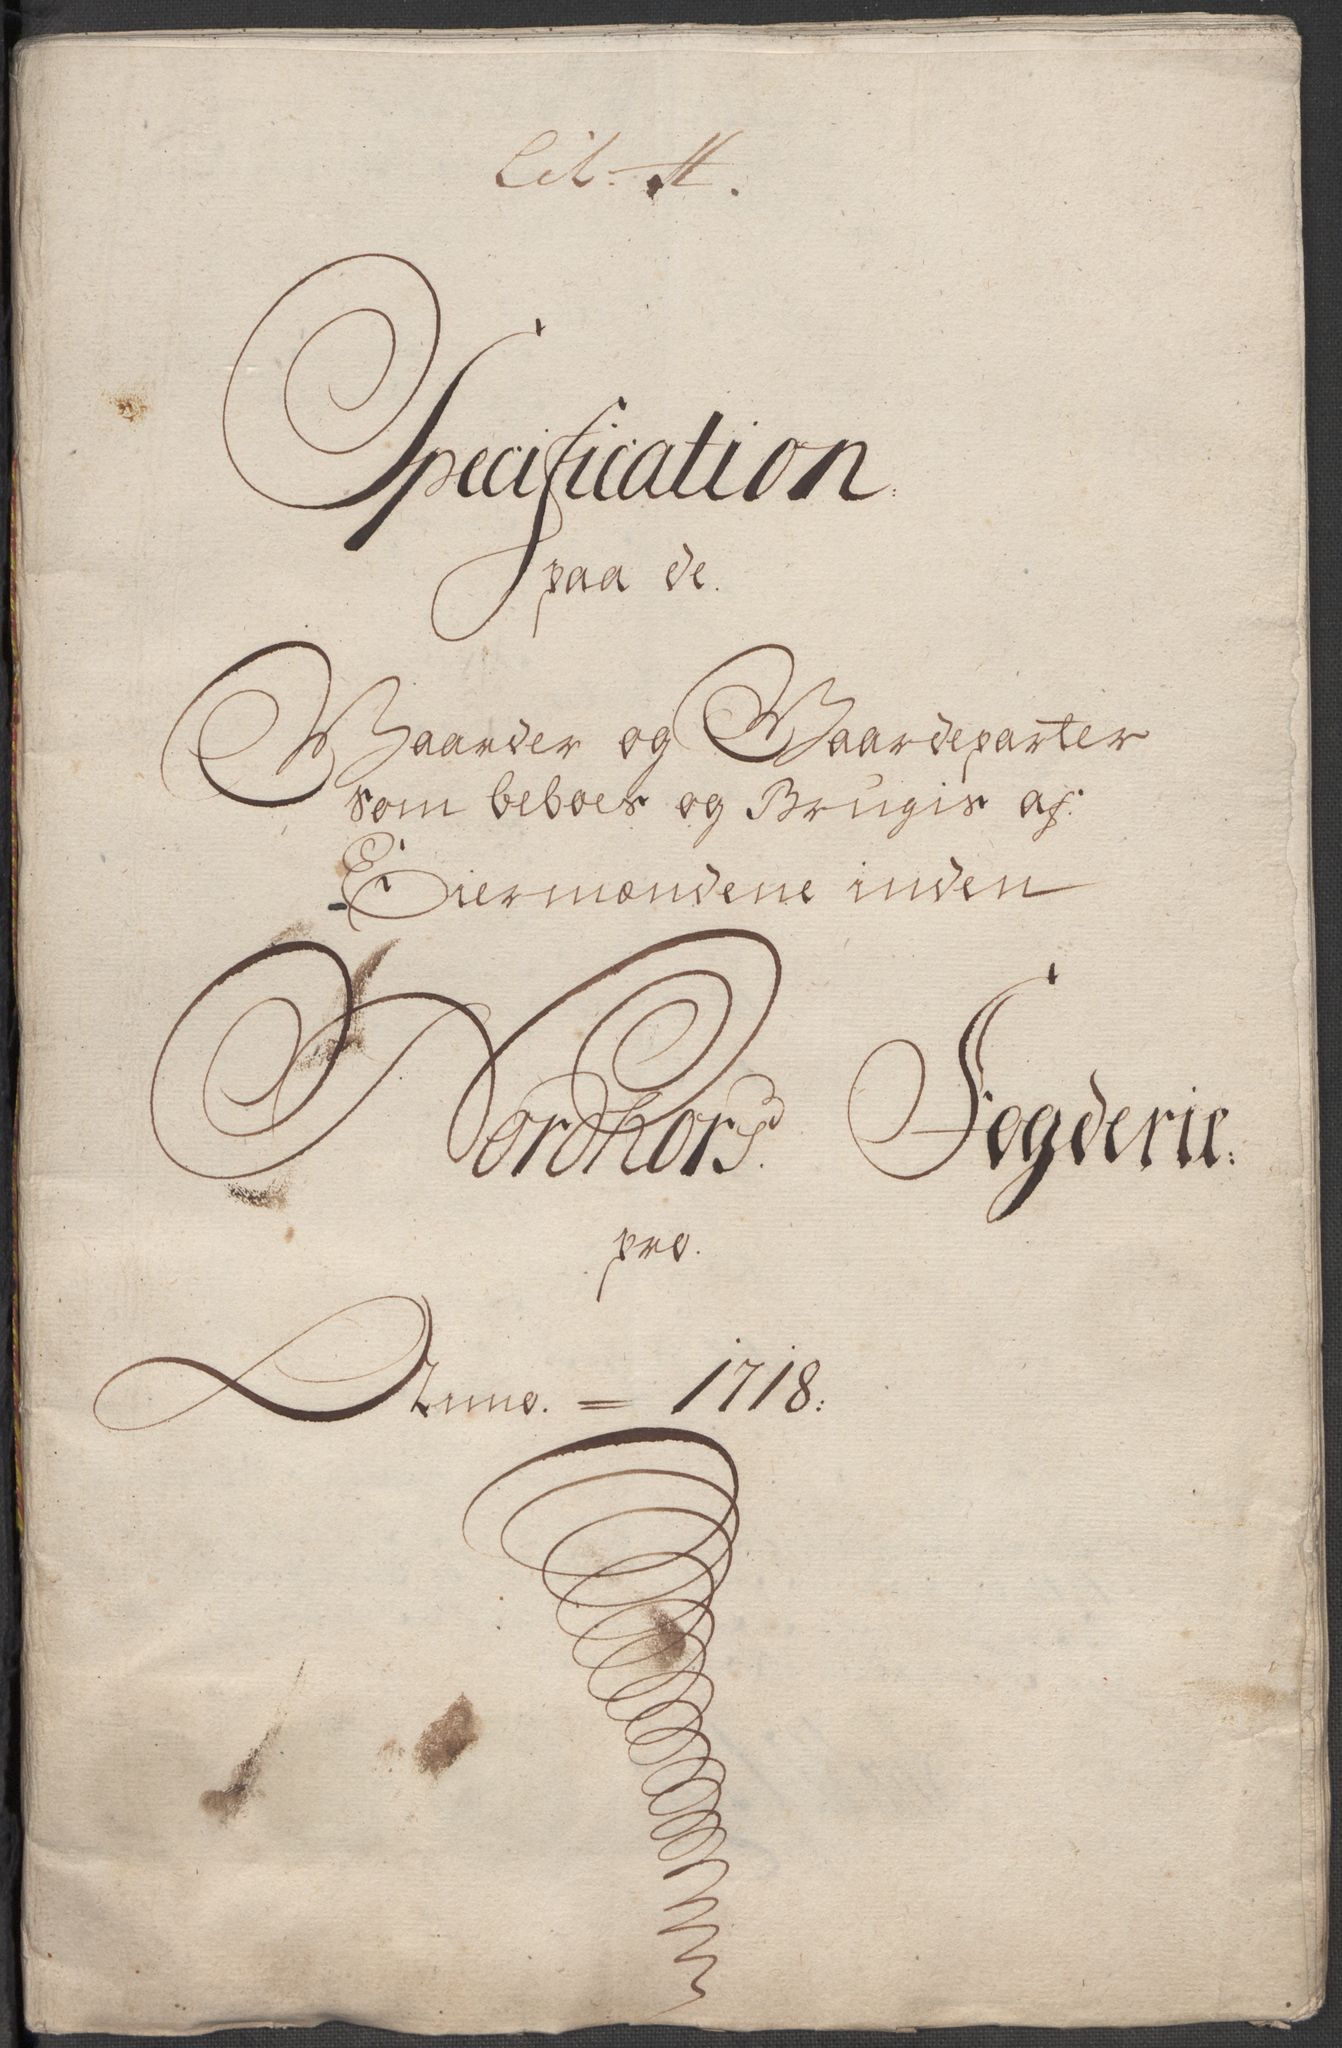 Lit. A.
Specification
paa de.
Gaarder og Gaardeparter
som beboes og Brugis af
Eiermændene inden
Nordhors Fogderie:
pro.
Anno. = 1718: